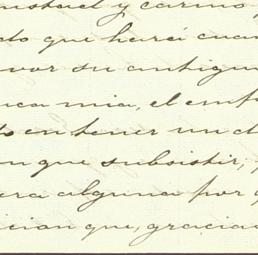 amistad y cariño
do que hará cuan
vor su antigu
nca mia, el emp
to en tener un d
on que subsistir,
era alguna por
icion que, gracias